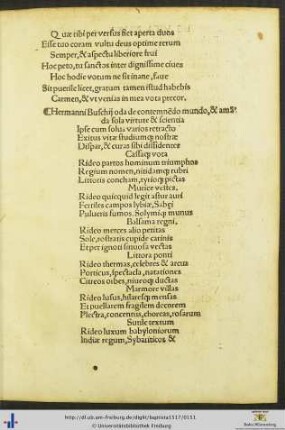 Quæ tibi per versus fiet aperta duos
Esse tuo coram vultu deus optime rerum
Semper, & aspectu liberiore frui
Hoc peto, tu sanctos inter dignissime ciues
Hoc hodie votum ne sit inane, faue
Sit puerile licet, gratum tamen istud habebis
Carmen, & vt venias in mea vota precor.
Hermanni Buschij oda de contemnēdo mundo, & amā
da sola virtute & scientia
Ipse cum solus varios retracto
Exitus vitæ studiumq; nostræ
Dispar, & curas sibi dissidentes
Cassaq; vota
Rideo partos hominum triumphos
Regium nomen, nitidamq; rubri
Littoris concham, tyrioq; pictas
Murice vestes.
Rideo quicquid legit astur auri
Fertiles campos lybiæ, Sabæi
Pulueris fumos. Solymiq; munus
Balsama regni.
Rideo merces alio petitas
Sole, rostratis cupide carinis
Et per ignoti sinuosa vectas
Littora ponti
Rideo thermas, celebres & arcus
Porticus, spectacla, natationes
Citreos orbes, niueoq; ductas
Marmore villas
Rideo lusus, hilaresq; mensas
Et puellarem fragilem decorem
Plectra, conuentus, choreas, rosarum
Sutile textum
Rideo luxum babyloniorum
Indiæ regum, Sybariticos &
http://dl.ub.uni-freiburg.de/diglit/baptista1517/0111
© Universitätsbibliothek Freiburg